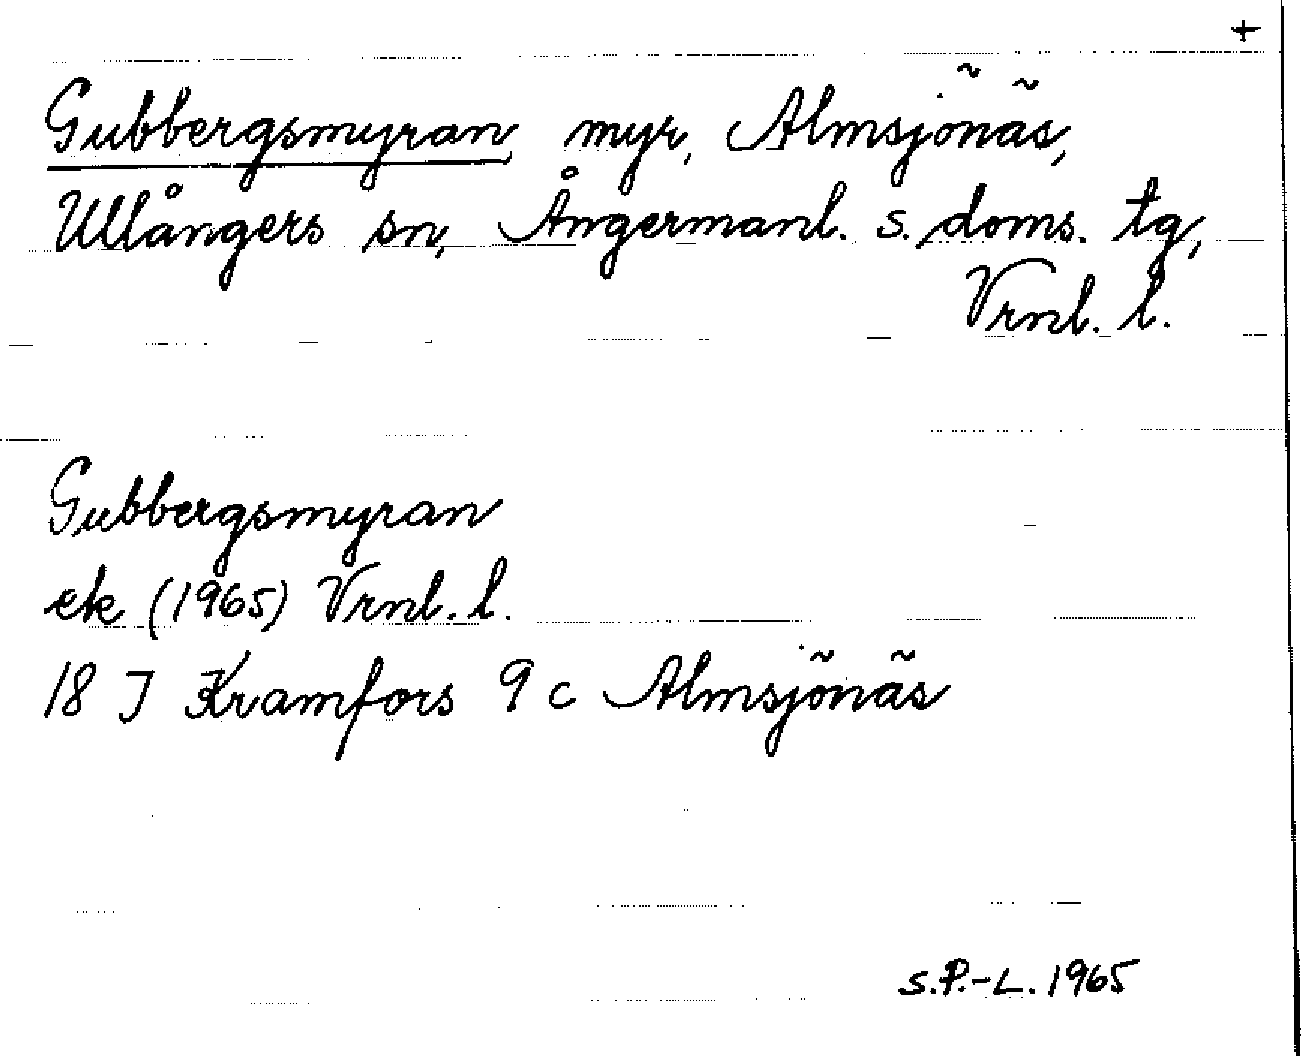 +
Gubbergsmyran, myr, Almsjönäs,
Ullångers sn, Ångermanl. s. doms. tg,
Vrnl. l.
Gubbergsmyran
ek (1965) Vrnl. l.
18 J Kramfors 9 c Almsjönäs
S.P.-L. 1965